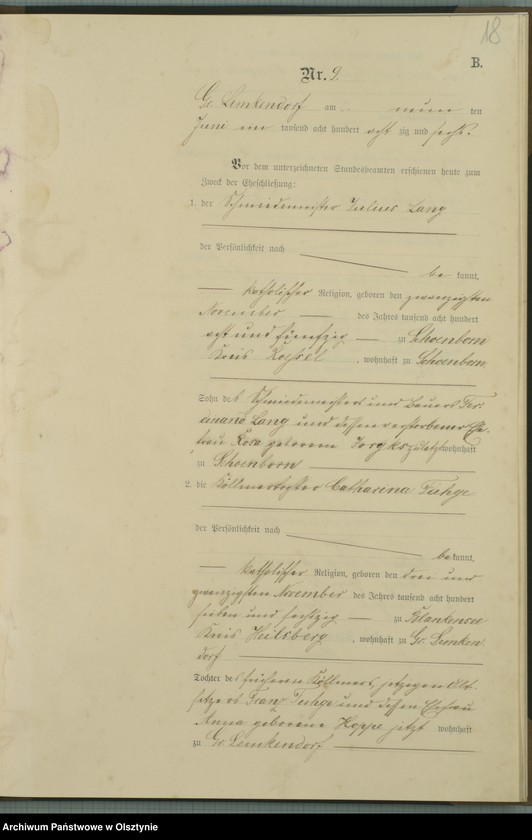 18
B.
Nr. 9.
Gr. Lemkendorf am neun ten
Juni ein tausend acht hundert acht zig und sechs.
Vor dem unterzeichneten Standesbeamten erschienen heute zum
Zweck der Eheschließung:
1. der Schmiedemeister Julius Lang
der Persönlichkeit nach
be kannt,
katholischer Religion, geboren den zwanzigsten
November des Jahres tausend acht hundert
acht und fünfzig zu Schoenborn
Kreis Roessel, wohnhaft zu Schoenborn
Sohn des Schmiedemeisters und Bauers Fer-
dinand Lang und dessen verstorbener Ehe-
frau Rosa geborenen zuletzt wohnhaft
zu Schoenborn
2. die Köllmertochter Catharina
der Persönlichkeit nach
be kannt,
katholischer Religion, geboren den drei und
zwanzigsten November des Jahres tausend acht hundert
sieben und sechszig zu Blankensee
Kreis Heilsberg, wohnhaft zu Gr. Lemken
dorf
Tochter des früheren Köllmers jetzigen Alt-
sitzers Franz und dessen Ehefrau
Anna geborene Hoppe jetzt wohnhaft
zu Gr. Lemkendorf
Archiwum Państwowe w Olsztynie